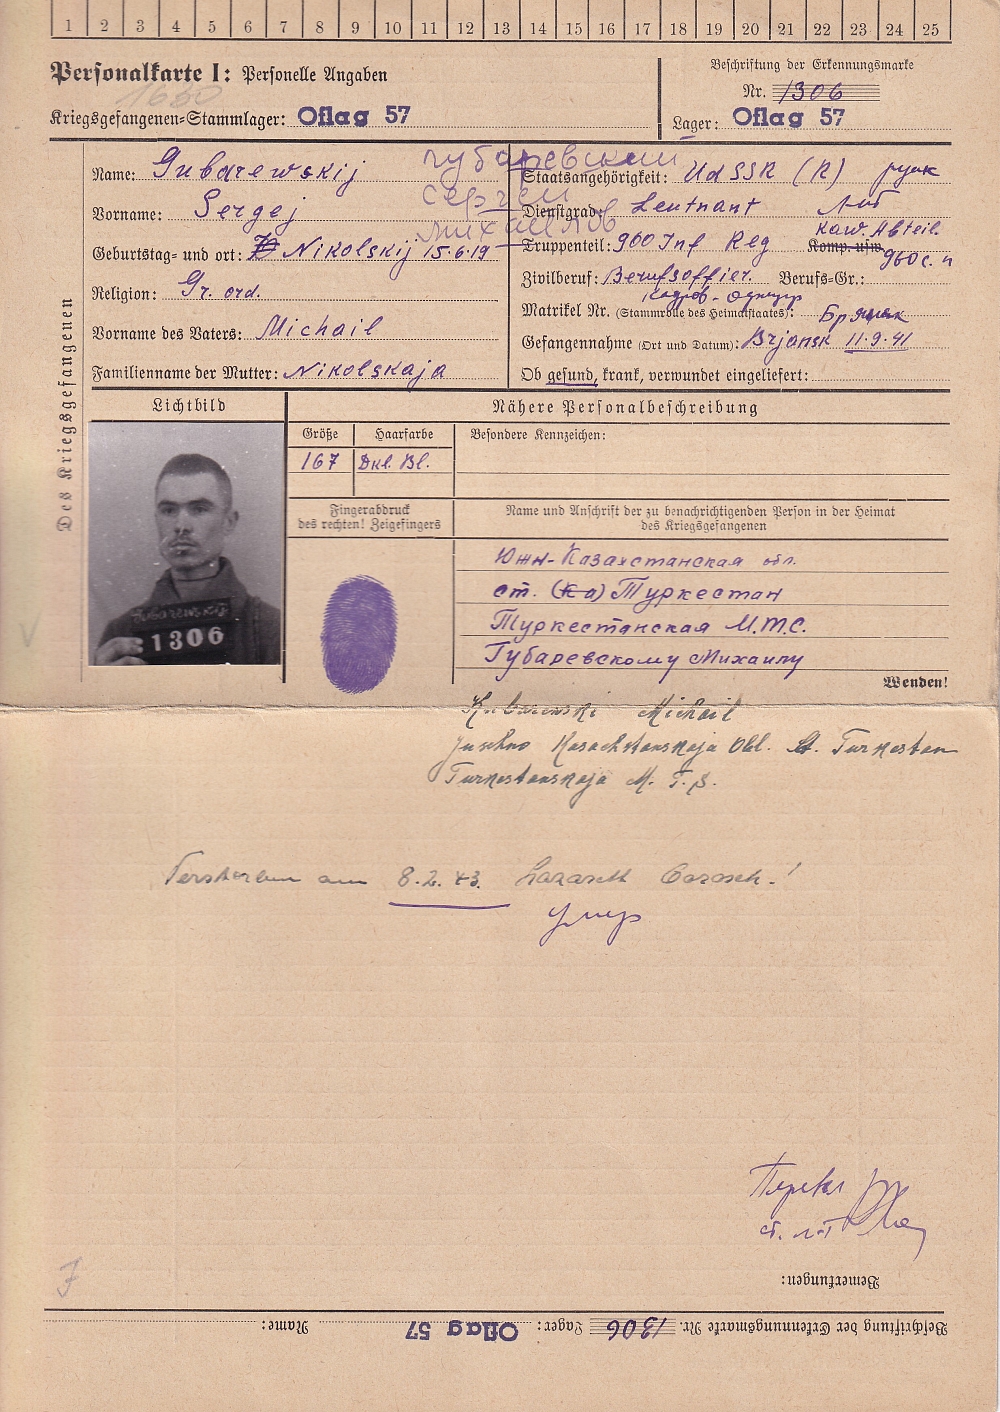 1 2 3 4 5 6 7 8 9 10 11 12 13 14 15 16 17 18 19 20 21 22 23 24 25
Personalkarte I: Personelle Angaben
1630
Kriegsgefangenen-Stammlager: Oflag 57
Beschriftung der Erkennungsmarke
Nr. 1306
Lager: Oflag 57
Des Kriegsgefangenen
Name: Gubarewskij
Губаревский
Vorname: Sergej
Сергей
Михайлов
Geburtstag- und ort: Nikolskij 15.6.19
Religion: Gr. ord.
Vorname des Vaters: Michail
Familienname der Mutter: Nikolskaja
Staatsangehörigkeit: UdSSR (R)
Dienstgrad: Leutnant
Л-т
Truppenteil: 960 Inf Reg Komp. usw.
Kaw. Abteil
960 с. п
Zivilberuf: Berufsoffier. Berufs-Gr.:
Кадров-офицер
Matrikel Nr. (Stammrolle des Heimatstaates):
Брянск
Gefangennahme (Ort und Datum): Brjansk 11.9.41
Ob gesund, krank, verwundet eingeliefert:
Lichtbild
Nähere Personalbeschreibung
Größe Haarfarbe Besondere Kennzeichen:
167 Dkl. Bl.
Gubarewskij
1306
Fingerabdruck
des rechten! Zeigefingers
Name und Anschrift der zu benachrichtigenden Person in der Heimat
des Kriegsgefangenen
Южн-Казахстанская обл.
ст. (ка) Туркестан
Туркестанская М.Т.С.
Губаревскому Михаилу
Wenden!
Kubarewski Michail
Juschno Kasachstanskaja Obl. St. Turkestan
Turkestanskaja M. T. S.
Verstorben am 8.2.43. Lazarett
умер
Перевел
ст. л-т
Bemerkungen:
Beschriftung der Erkennungsmarke Nr. 1306 Lager: Oflag 57 Name: